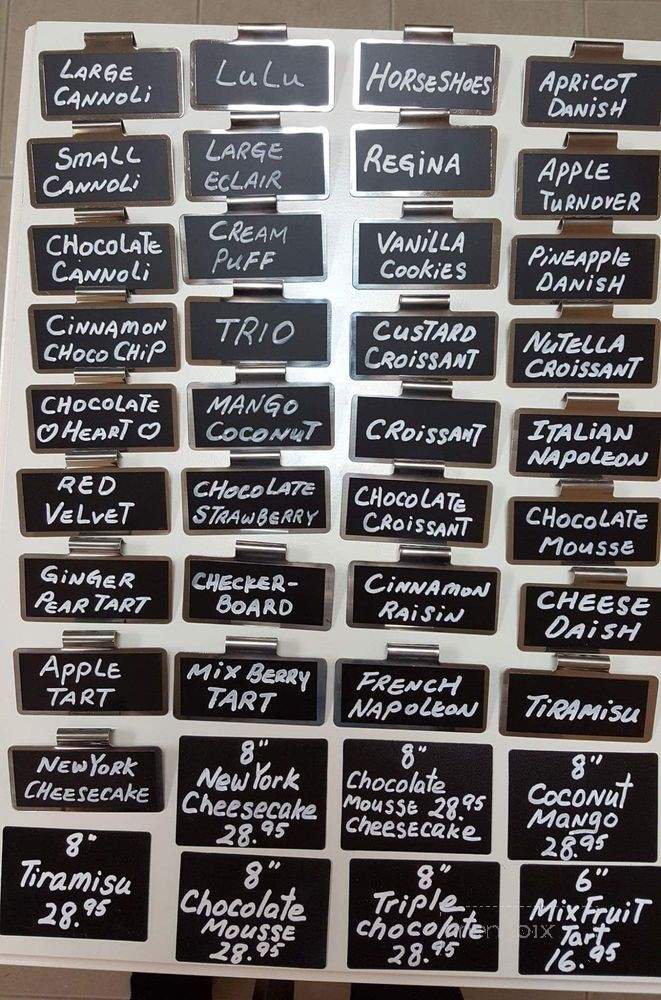 LARGE
CANNOLi
LuLu
HORSESHOES
APRICOT
DANISH
SMALL
CANNOLi
LARGE
ECLAIR
REGINA
APPLE
TURNOVER
CHOCOLATE
CANNOLi
CREAM
PUFF
VANiLLA
COOKIES
PINEAPPLE
DANISH
CINNAMON
CHOCO CHIP
TRIO
CUSTARD
CROISSANT
NUTELLA
CROISSANT
CHOCOLATE
♡ HEART ♡
MANGO
COCONUT
CROISSANT
ITALIAN
NAPOLEON
RED
VELVET
CHOCOLATE
STRAWBERRY
CHOCOLATE
CROISSANT
CHOCOLATE
MOUSSE
GINGER
PEAR TART
CHECKER-
BOARD
CINNAMON
RAISIN
CHEESE
DAISH
APPLE
TART
MIX BERRY
TART
FRENCH
NAPOLEON
TIRAMISU
NEW YORK
CHEESECAKE
8"
New York
Cheesecake
28.95
8"
Chocolate
MOUSSE 28.95
CHEESECAKE
8"
COCONUT
Mango
28.95
8"
Tiramisu
28.95
8"
Chocolate
MOUSSE
28.95
8"
Triple
chocolate
28.95
6"
Mix FRUIT
Tart
16.95